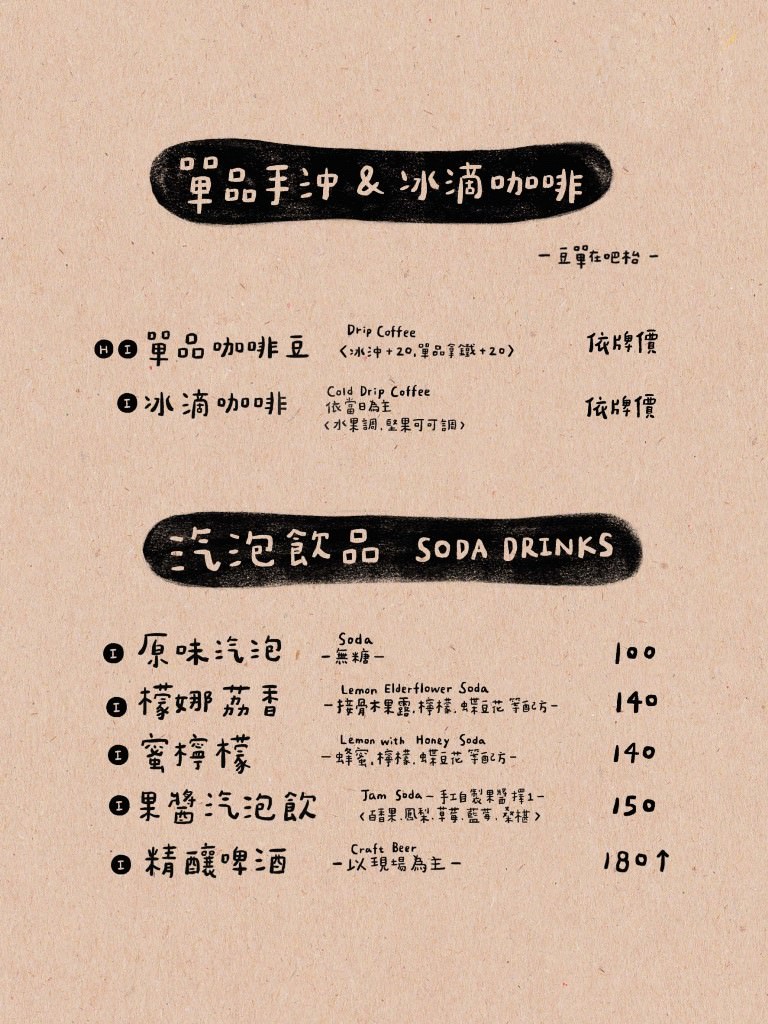 單品手沖 & 冰滴咖啡
– 豆單在吧枱 –
H I 單品咖啡豆 Drip Coffee 依牌價
〈冰沖+20,單品拿鐵+20〉
I 冰滴咖啡 Cold Drip Coffee 依牌價
依當日為主
〈水果調.堅果可可調〉
汽泡飲品 SODA DRINKS
I 原味汽泡 Soda 100
–無糖–
I 檬娜荔香 Lemon Elderflower Soda 140
–接骨木果露.檸檬.蝶豆花等配方–
I 蜜檸檬 Lemon with Honey Soda 140
–蜂蜜.檸檬.蝶豆花等配方–
I 果醬汽泡飲 Jam Soda–手工自製果醬擇1– 150
〈百香果.鳳梨.草莓.藍莓.桑椹〉
I 精釀啤酒 Craft Beer 180↑
–以現場為主–